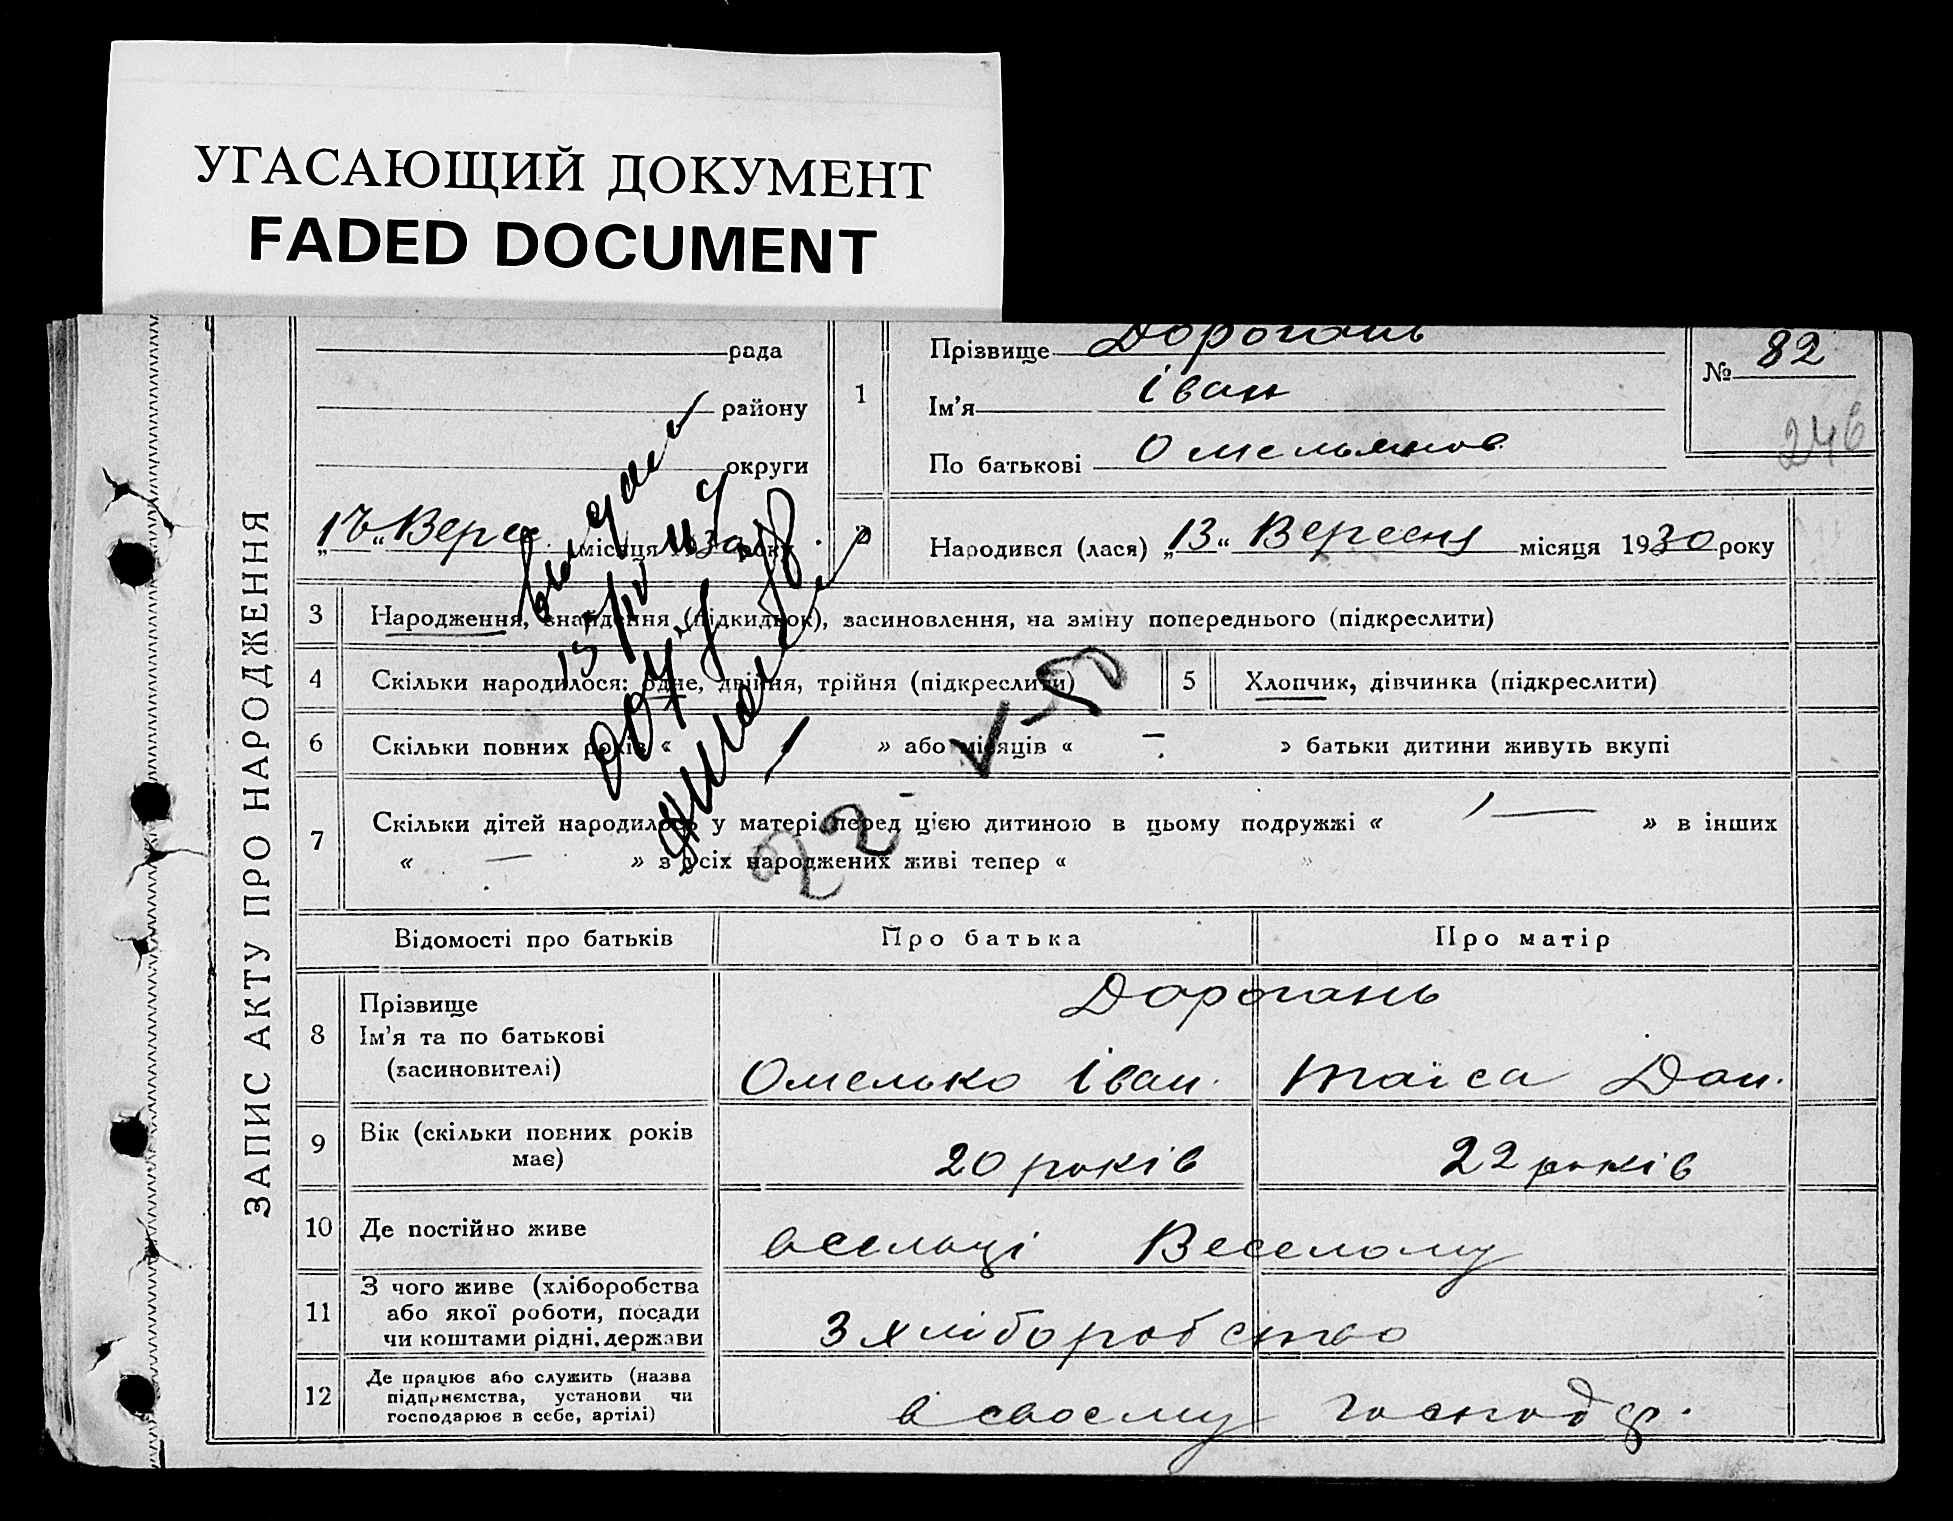 УГАСАЮЩИЙ ДОКУМЕНТ
FADED DOCUMENT
ЗАПИС АКТУ ПРО НАРОДЖЕННЯ
рада
району
округи
Верес місяця 1930 року
1
Прізвище Дорогань
Ім’я Іван
По батькові Омельянов.
№ 82
246
2
Народився (лася) „13“ Вересня місяця 1930 року
3 Народження, знайдення (підкидьок), засиновлення, на зміну попереднього (підкреслити)
4 Скільки народилося: одне, двійня, трійня (підкреслити)
5 Хлопчик, дівчинка (підкреслити)
6 Скільки повних років « — » або місяців « — » батьки дитини живуть вкупі
7 Скільки дітей народилось у матері перед цією дитиною в цьому подружжі « — » в інших
« — » з усіх народжених живі тепер « »
видано
22 - V-50
Відомості про батьків
Про батька
Про матір
8 Прізвище
Ім’я та по батькові
(засиновителі)
Дорогань
Омелько Іван.
Таїса Дан.
9 Вік (скільки повних років
має)
20 років
22 років
10 Де постійно живе
в сельці Веселому
11 З чого живе (хліборобства
або якої роботи, посади
чи коштами рідні, держави
З хліборобство
12 Де працює або служить (назва
підприємства, установи чи
господарює в себе, артілі)
в своєму господ.